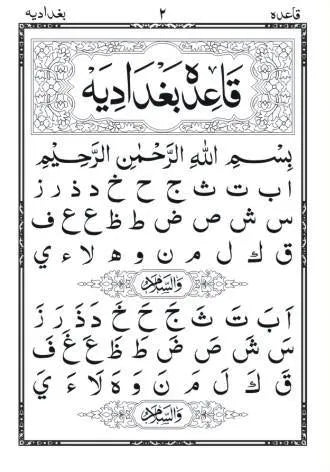 قاعده ٢ بغداديه
قَاعِدَه بَغْدَادِيَه
بِسْمِ اللهِ الرَّحْمٰنِ الرَّحِيْمِ
ا ب ت ث ج ح خ د ذ ر ز
س ش ص ض ط ظ ع غ ف
ق ك ل م ن و ه لا ء ي
وَالسَّلَام
اَ بَ تَ ثَ جَ حَ خَ دَ ذَ رَ زَ
سَ شَ صَ ضَ طَ ظَ عَ غَ فَ
قَ كَ لَ مَ نَ وَ هَ لَا ءَ يَ
وَالسَّلَام